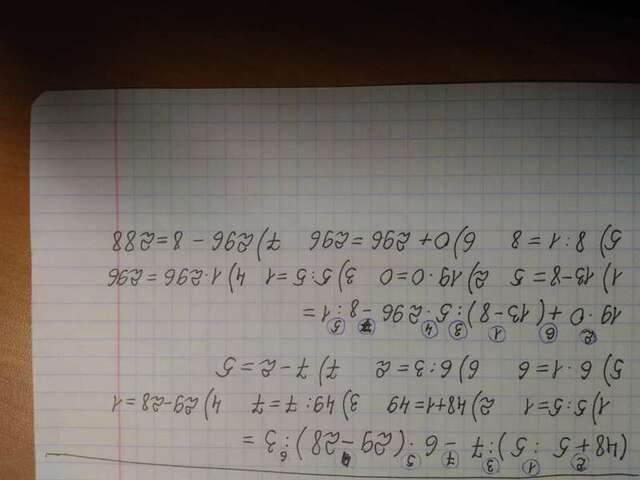 (48+5:5):7-6·(29-28):3=
2 1 3 7 5 4 6
1) 5:5=1 2) 48+1=49 3) 49:7=7 4) 29-28=1
5) 6·1=6 6) 6:3=2 7) 7-2=5
2 6 1 3 4 7 5
19·0+(13-8):5·296-8:1=
1) 13-8=5 2) 19·0=0 3) 5:5=1 4) 1·296=296
5) 8:1=8 6) 0+296=296 7) 296-8=288